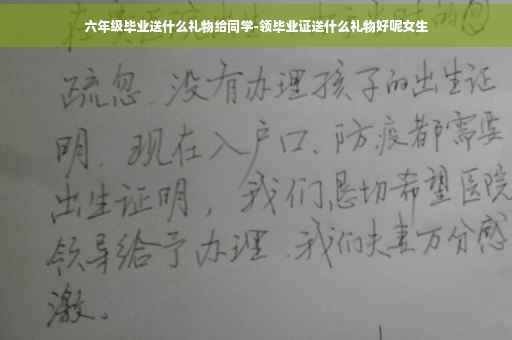 六年级毕业送什么礼物给同学-领毕业证送什么礼物好呢女生
疏忽、没有办理孩子的出生证
明、现在入户口、防疫都需要
出生证明，我们恳切希望医院
领导给予办理、我们夫妻万分感
激。